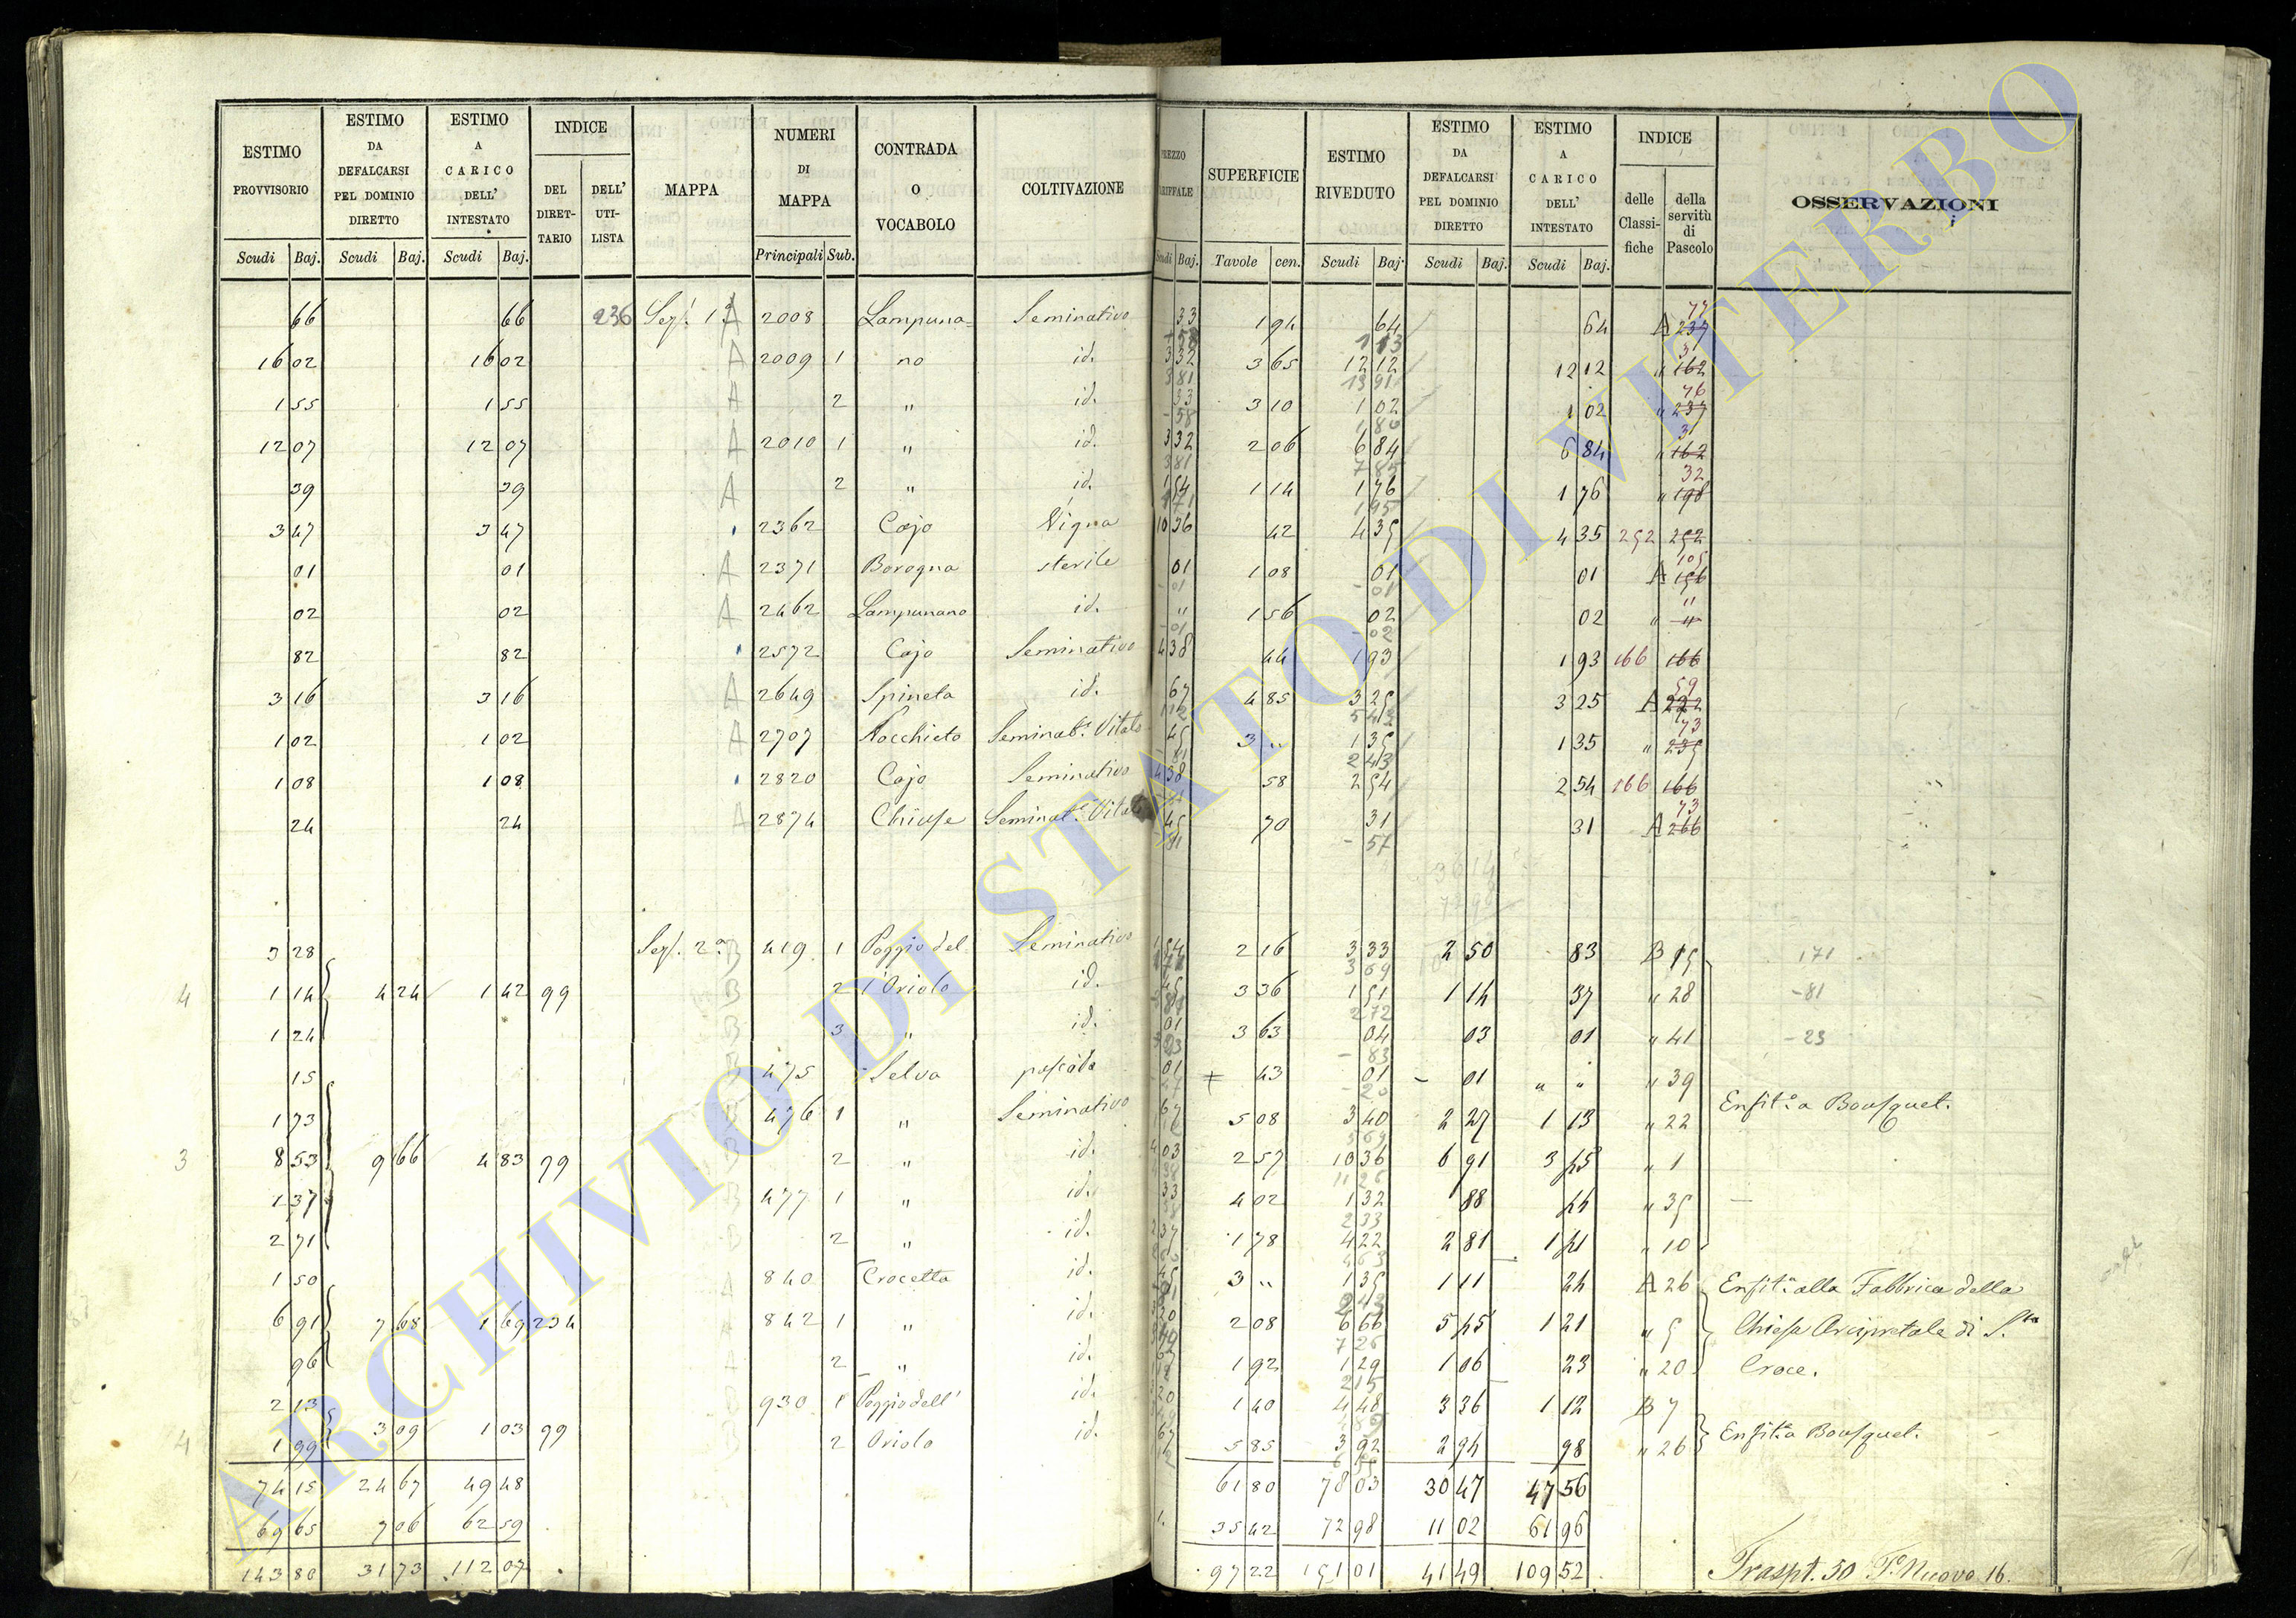 ESTIMO PROVVISORIO | ESTIMO DA DEFALCARSI PEL DOMINIO DIRETTO | ESTIMO A CARICO DELL' INTESTATO | INDICE | MAPPA | NUMERI DI MAPPA | CONTRADA O VOCABOLO | COLTIVAZIONE | SUPERFICIE | ESTIMO RIVEDUTO | ESTIMO DA DEFALCARSI PEL DOMINIO DIRETTO | ESTIMO A CARICO DELL' INTESTATO | INDICE | OSSERVAZIONI
DEL DIRETTARIO | DELL' UTILISTA | delle Classifiche | della servitù di Pascolo
Scudi | Baj. | Scudi | Baj. | Scudi | Baj. | Principali | Sub. | Baj. | Tavole | cen. | Scudi | Baj. | Scudi | Baj. | Scudi | Baj.
66 | 66 | 236 | Sez. 1ª A | 2008 | Lampuna= | Seminativo | 33 | 1 94 | 64 | 64 | A 237 77
16 02 | 16 02 | A | 2009 | 1 | no | id. | 3 32 | 3 65 | 12 12 | 12 12 | " 162 31
1 55 | 1 55 | A | 2 | " | id. | 33 | 3 10 | 1 02 | 1 02 | " 237 76
12 07 | 12 07 | A | 2010 | 1 | " | id. | 3 32 | 2 06 | 6 84 | 6 84 | " 162 31
39 | 39 | A | 2 | " | id. | 1 54 | 1 14 | 1 76 | 1 76 | " 198 32
3 47 | 3 47 | 2362 | Cajo | Vigna | 10 36 | 42 | 4 35 | 4 35 | 252 | 252
01 | 01 | A | 2371 | Borogna | sterile | 01 | 1 08 | 01 | 01 | A 156 105
02 | 02 | A | 2462 | Lampunano | id. | " | 1 56 | 02 | 02 | " " "
82 | 82 | 2572 | Cajo | Seminativo | 4 38 | 44 | 1 93 | 1 93 | 166 | 166
3 16 | 3 16 | A | 2649 | Spineta | id. | 67 | 4 85 | 3 25 | 3 25 | A 222 59
1 02 | 1 02 | A | 2707 | Nocchieto | Seminat.º Vitato | 45 | 3 " | 1 35 | 1 35 | " 235 73
1 08 | 1 08 | 2820 | Cajo | Seminativo | 4 38 | 58 | 2 54 | 2 54 | 166 | 166
24 | 24 | A | 2874 | Chiuse | Seminat.º Vitato | 45 | 70 | 31 | 31 | A 266 73
3 28 | Sez. 2ª B | 419 | 1 | Poggio del | Seminativo | 1 54 | 2 16 | 3 33 | 2 50 | 83 | B 15 | 171
4 | 1 14 | 4 24 | 1 42 | 99 | B | 2 | l'Oriolo | id. | 45 | 3 36 | 1 51 | 1 14 | 37 | " 28 | -81
1 24 | B | 3 | " | id. | 01 | 3 63 | 04 | 03 | 01 | " 41 | -23
15 | B | 475 | Selva | pascolo | 01 | + 43 | 01 | - 01 | " " | " 39
1 73 | B | 476 | 1 | " | Seminativo | 67 | 5 08 | 3 40 | 2 27 | 1 13 | " 22 | Enfit.ª a Bousquet.
3 | 8 53 | 9 66 | 4 83 | 99 | B | 2 | " | id. | 4 03 | 2 57 | 10 36 | 6 91 | 3 45 | " 1
1 37 | B | 477 | 1 | " | id. | 33 | 4 02 | 1 32 | 88 | 44 | " 35
2 71 | B | 2 | " | id. | 2 37 | 1 78 | 4 22 | 2 81 | 1 41 | " 10
1 50 | A | 840 | Crocetta | id. | 45 | 3 " | 1 35 | 1 11 | 24 | A 26 | Enfit.ª alla Fabbrica della
6 91 | 7 68 | 1 69 | 234 | A | 842 | 1 | " | id. | 3 20 | 2 08 | 6 66 | 5 45 | 1 21 | " 5 | Chiesa Arcipretale di S.ta
96 | A | 2 | " | id. | 67 | 1 92 | 1 29 | 1 06 | 23 | " 20 | Croce.
2 13 | B | 930 | 1 | Poggio dell' | id. | 3 20 | 1 40 | 4 48 | 3 36 | 1 12 | B 7
4 | 1 99 | 3 09 | 1 03 | 99 | 2 | Oriolo | id. | 67 | 5 85 | 3 92 | 2 94 | 98 | " 26 | Enfit.ª a Bousquet.
74 15 | 24 67 | 49 48 | 61 80 | 78 03 | 30 47 | 47 56
69 65 | 7 06 | 62 59 | 35 42 | 72 98 | 11 02 | 61 96
143 80 | 31 73 | 112 07 | 97 22 | 151 01 | 41 49 | 109 52 | Traspt. 50 P.º Nuovo 16.
ARCHIVIO DI STATO DI VITERBO